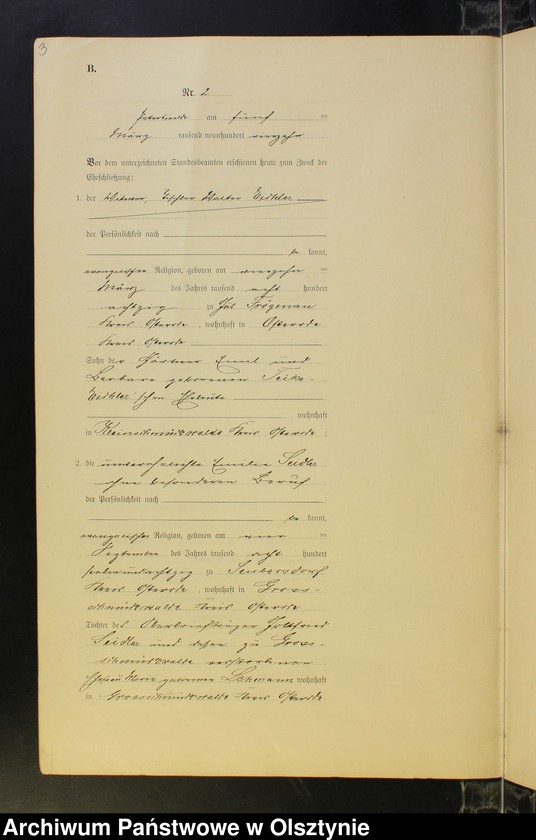 3
B.
Nr. 2
am fünf ten
März tausend neunhundert vierzehn
Vor dem unterzeichneten Standesbeamten erschienen heute zum Zweck der
Eheschließung:
1. der Witwer, Tischler Walter Eichler
der Persönlichkeit nach
be kannt,
evangelischer Religion, geboren am vierzehn ten
März des Jahres tausend acht hundert
achtzig zu Gut
Kreis Osterode, wohnhaft in Osterode
Kreis Osterode
Sohn der Gärtner Emil und
Barbara geborenen
Eichler'schen Eheleute
wohnhaft
in Kleinschmückwalde Kreis Osterode.
2. die unverehelichte Emilie Seidler
ohne besonderen Beruf
der Persönlichkeit nach
be kannt,
evangelischer Religion, geboren am
September des Jahres tausend acht hundert
siebenundachtzig zu Seubersdorf
Kreis Osterode, wohnhaft in Gross-
schmückwalde Kreis Osterode
Tochter des Gottfried
Seidler und dessen zu Gross-
schmückwalde verstorbenen
Ehefrau Marie geborenen Lehmann wohnhaft
in Grossschmückwalde Kreis Osterode
Archiwum Państwowe w Olsztynie